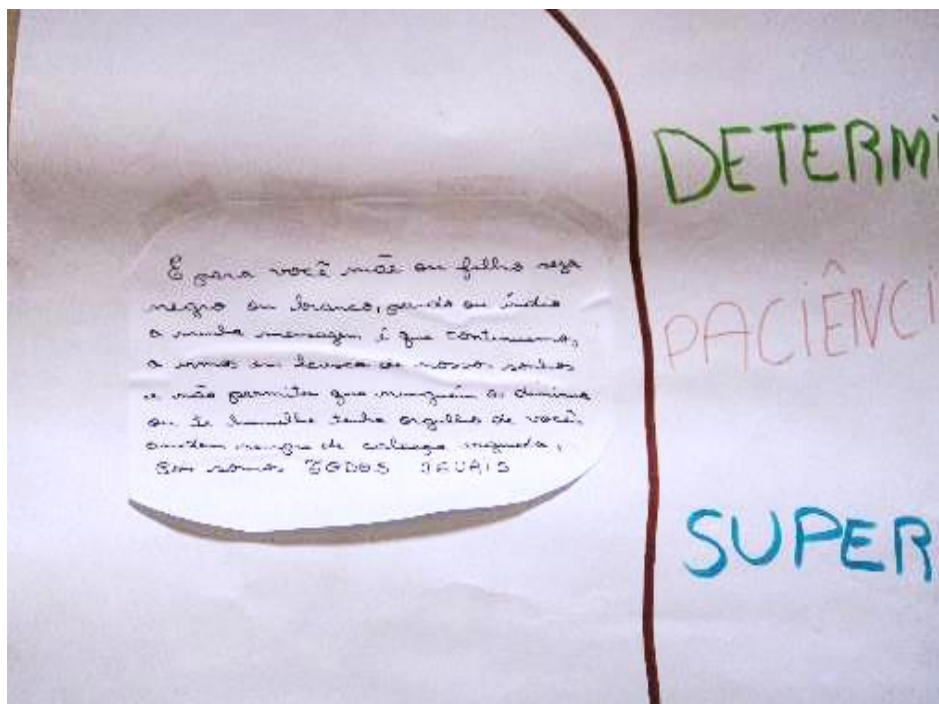 E para você mãe ou filho seja
negro ou branco, pardo ou índio
a minha mensagem é que continuemos,
a irmos em busca de nossos sonhos
e não permita que ninguém os diminua
ou te humilhe tenha orgulho de você,
sempre de cabeça erguida,
somos TODOS IGUAIS
DETERMI
PACIÊNCI
SUPER